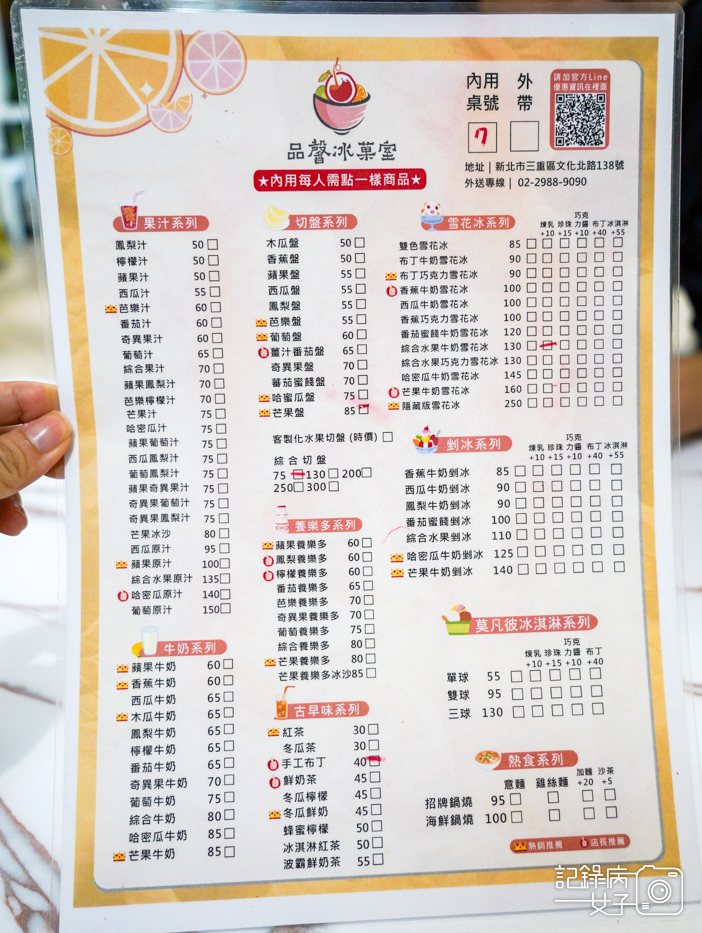 內用 外
桌號 帶
7
請加官方Line
優惠資訊在裡面
品馨冰菓室
★內用每人需點一樣商品★
地址｜新北市三重區文化北路138號
外送專線｜ 02-2988-9090
果汁系列
鳳梨汁 50
檸檬汁 50
蘋果汁 50
西瓜汁 55
芭樂汁 60
番茄汁 60
奇異果汁 60
葡萄汁 65
綜合果汁 70
蘋果鳳梨汁 70
芭樂檸檬汁 70
芒果汁 75
哈密瓜汁 75
蘋果葡萄汁 75
西瓜鳳梨汁 75
葡萄鳳梨汁 75
蘋果奇異果汁 75
奇異果葡萄汁 75
奇異果鳳梨汁 75
芒果冰沙 80
西瓜原汁 95
蘋果原汁 100
綜合水果原汁 135
哈密瓜原汁 140
葡萄原汁 150
牛奶系列
蘋果牛奶 60
香蕉牛奶 60
西瓜牛奶 65
木瓜牛奶 65
鳳梨牛奶 65
檸檬牛奶 65
番茄牛奶 65
奇異果牛奶 70
葡萄牛奶 75
綜合牛奶 80
哈密瓜牛奶 85
芒果牛奶 85
切盤系列
木瓜盤 50
香蕉盤 50
蘋果盤 55
西瓜盤 55
鳳梨盤 55
芭樂盤 55
葡萄盤 60
薑汁番茄盤 65
奇異果盤 70
蕃茄蜜餞盤 70
哈蜜瓜盤 75
芒果盤 85
客製化水果切盤 (時價)
綜合切盤
75 130 200
250 300
養樂多系列
蘋果養樂多 60
鳳梨養樂多 60
檸檬養樂多 60
番茄養樂多 65
芭樂養樂多 70
奇異果養樂多 70
葡萄養樂多 75
綜合養樂多 80
芒果養樂多 80
芒果養樂多冰沙85
古早味系列
紅茶 30
冬瓜茶 30
手工布丁 40
鮮奶茶 45
冬瓜檸檬 45
冬瓜鮮奶 45
蜂蜜檸檬 50
冰淇淋紅茶 50
波霸鮮奶茶 55
雪花冰系列
煉乳 珍珠 巧克力醬 布丁 冰淇淋
+10 +15 +10 +40 +55
雙色雪花冰 85
布丁牛奶雪花冰 90
布丁巧克力雪花冰 90
香蕉牛奶雪花冰 100
西瓜牛奶雪花冰 100
香蕉巧克力雪花冰 100
番茄蜜餞牛奶雪花冰 120
綜合水果牛奶雪花冰 130
綜合水果巧克力雪花冰 130
哈密瓜牛奶雪花冰 145
芒果牛奶雪花冰 160
隱藏版雪花冰 250
剉冰系列
煉乳 珍珠 巧克力醬 布丁 冰淇淋
+10 +15 +10 +40 +55
香蕉牛奶剉冰 85
西瓜牛奶剉冰 90
鳳梨牛奶剉冰 90
番茄蜜餞剉冰 100
綜合水果剉冰 110
哈蜜瓜牛奶剉冰 125
芒果牛奶剉冰 140
莫凡彼冰淇淋系列
煉乳 珍珠 巧克力醬 布丁
+10 +15 +10 +40
單球 55
雙球 95
三球 130
熱食系列
意麵 雞絲麵 加麵 +20 沙茶 +5
招牌鍋燒 95
海鮮鍋燒 100
熱銷推薦 店長推薦
記錄病女子